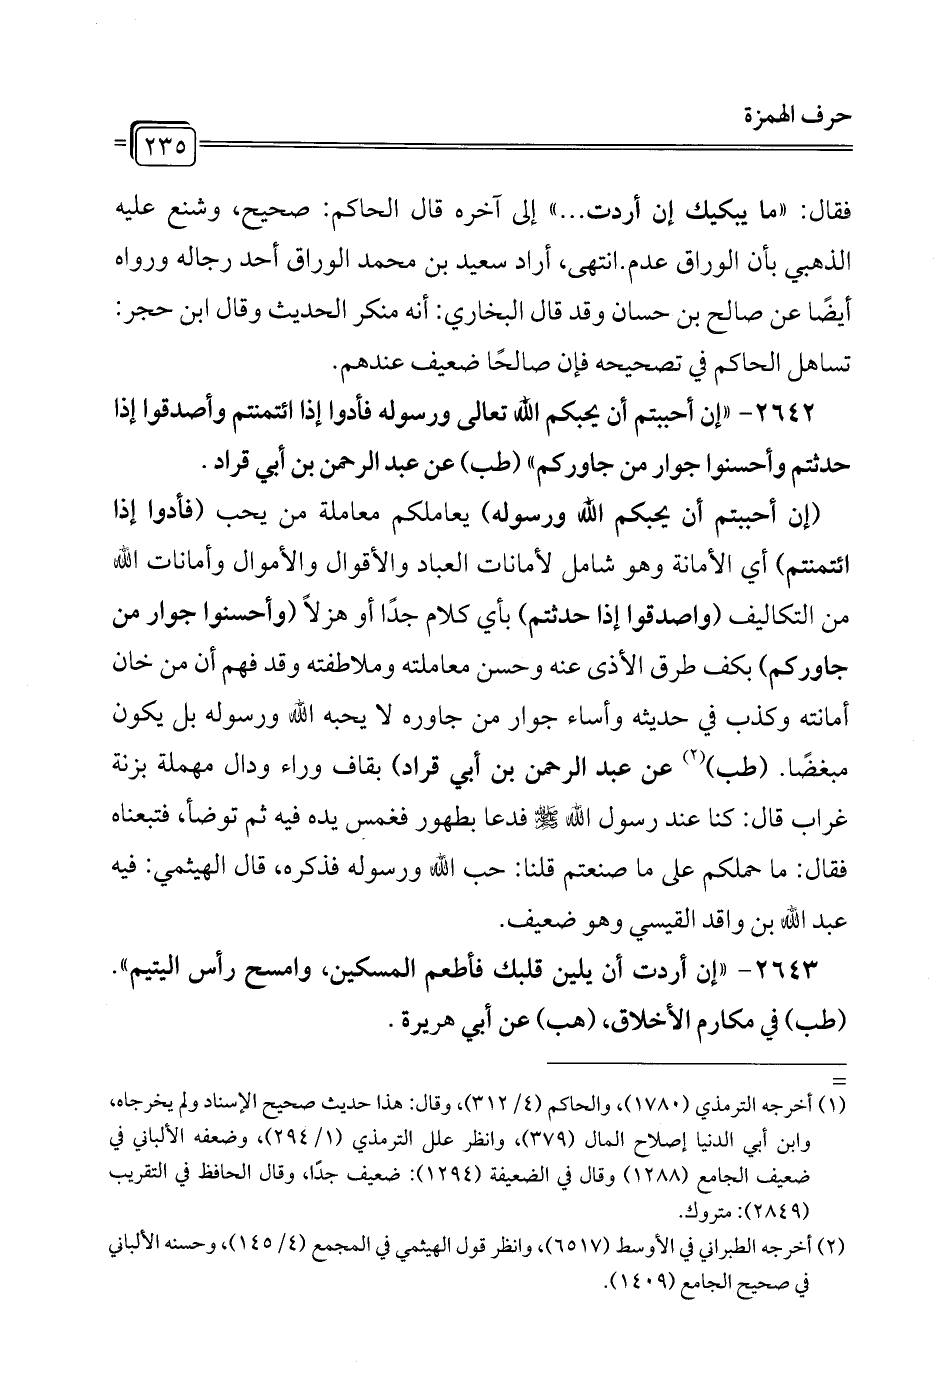 حرف الهمزة
٢٣٥
فقال: «ما يبكيك إن أردت...» إلى آخره قال الحاكم: صحيح، وشنع عليه
الذهبي بأن الوراق عدم.انتهى، أراد سعيد بن محمد الوراق أحد رجاله ورواه
أيضًا عن صالح بن حسان وقد قال البخاري: أنه منكر الحديث وقال ابن حجر:
تساهل الحاكم في تصحيحه فإن صالحًا ضعيف عندهم.
٢٦٤٢- «إن أحببتم أن يحبكم الله تعالى ورسوله فأدوا إذا ائتمنتم وأصدقوا إذا
حدثتم وأحسنوا جوار من جاوركم» (طب) عن عبد الرحمن بن أبي قراد .
(إن أحببتم أن يحبكم الله ورسوله) يعاملكم معاملة من يحب (فأدوا إذا
ائتمنتم) أي الأمانة وهو شامل لأمانات العباد والأقوال والأموال وأمانات الله
من التكاليف (واصدقوا إذا حدثتم) بأي كلام جدًا أو هزلاً (وأحسنوا جوار من
جاوركم) بكف طرق الأذى عنه وحسن معاملته وملاطفته وقد فهم أن من خان
أمانته وكذب في حديثه وأساء جوار من جاوره لا يحبه الله ورسوله بل يكون
مبغضًا. (طب)(٢) عن عبد الرحمن بن أبي قراد) بقاف وراء ودال مهملة بزنة
غراب قال: كنا عند رسول الله ﷺ فدعا بطهور فغمس يده فيه ثم توضأ، فتبعناه
فقال: ما حملكم على ما صنعتم قلنا: حب الله ورسوله فذكره، قال الهيثمي: فيه
عبد الله بن واقد القيسي وهو ضعيف.
٢٦٤٣- «إن أردت أن يلين قلبك فأطعم المسكين، وامسح رأس اليتيم».
(طب) في مكارم الأخلاق، (هب) عن أبي هريرة .
=
(١) أخرجه الترمذي (١٧٨٠)، والحاكم (٤/ ٣١٢)، وقال: هذا حديث صحيح الإسناد ولم يخرجاه،
وابن أبي الدنيا إصلاح المال (٣٧٩)، وانظر علل الترمذي (١/ ٢٩٤)، وضعفه الألباني في
ضعيف الجامع (١٢٨٨) وقال في الضعيفة (١٢٩٤): ضعيف جدًا، وقال الحافظ في التقريب
(٢٨٤٩): متروك.
(٢) أخرجه الطبراني في الأوسط (٦٥١٧)، وانظر قول الهيثمي في المجمع (٤/ ١٤٥)، وحسنه الألباني
في صحيح الجامع (١٤٠٩).